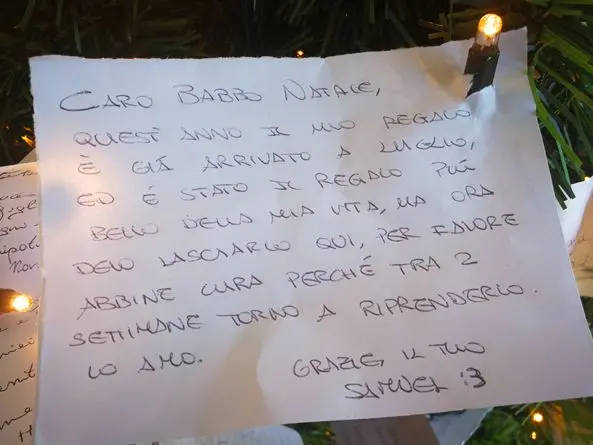 CARO BABBO NATALE,
QUEST'ANNO IL MIO REGALO
È GIÀ ARRIVATO A LUGLIO,
ED È STATO IL REGALO PIÙ
BELLO DELLA MIA VITA, MA ORA
DEVO LASCIARLO QUI, PER FAVORE
ABBINE CURA PERCHÉ TRA 2
SETTIMANE TORNO A RIPRENDERLO.
LO AMO.
GRAZIE, IL TUO
SAMUEL :3